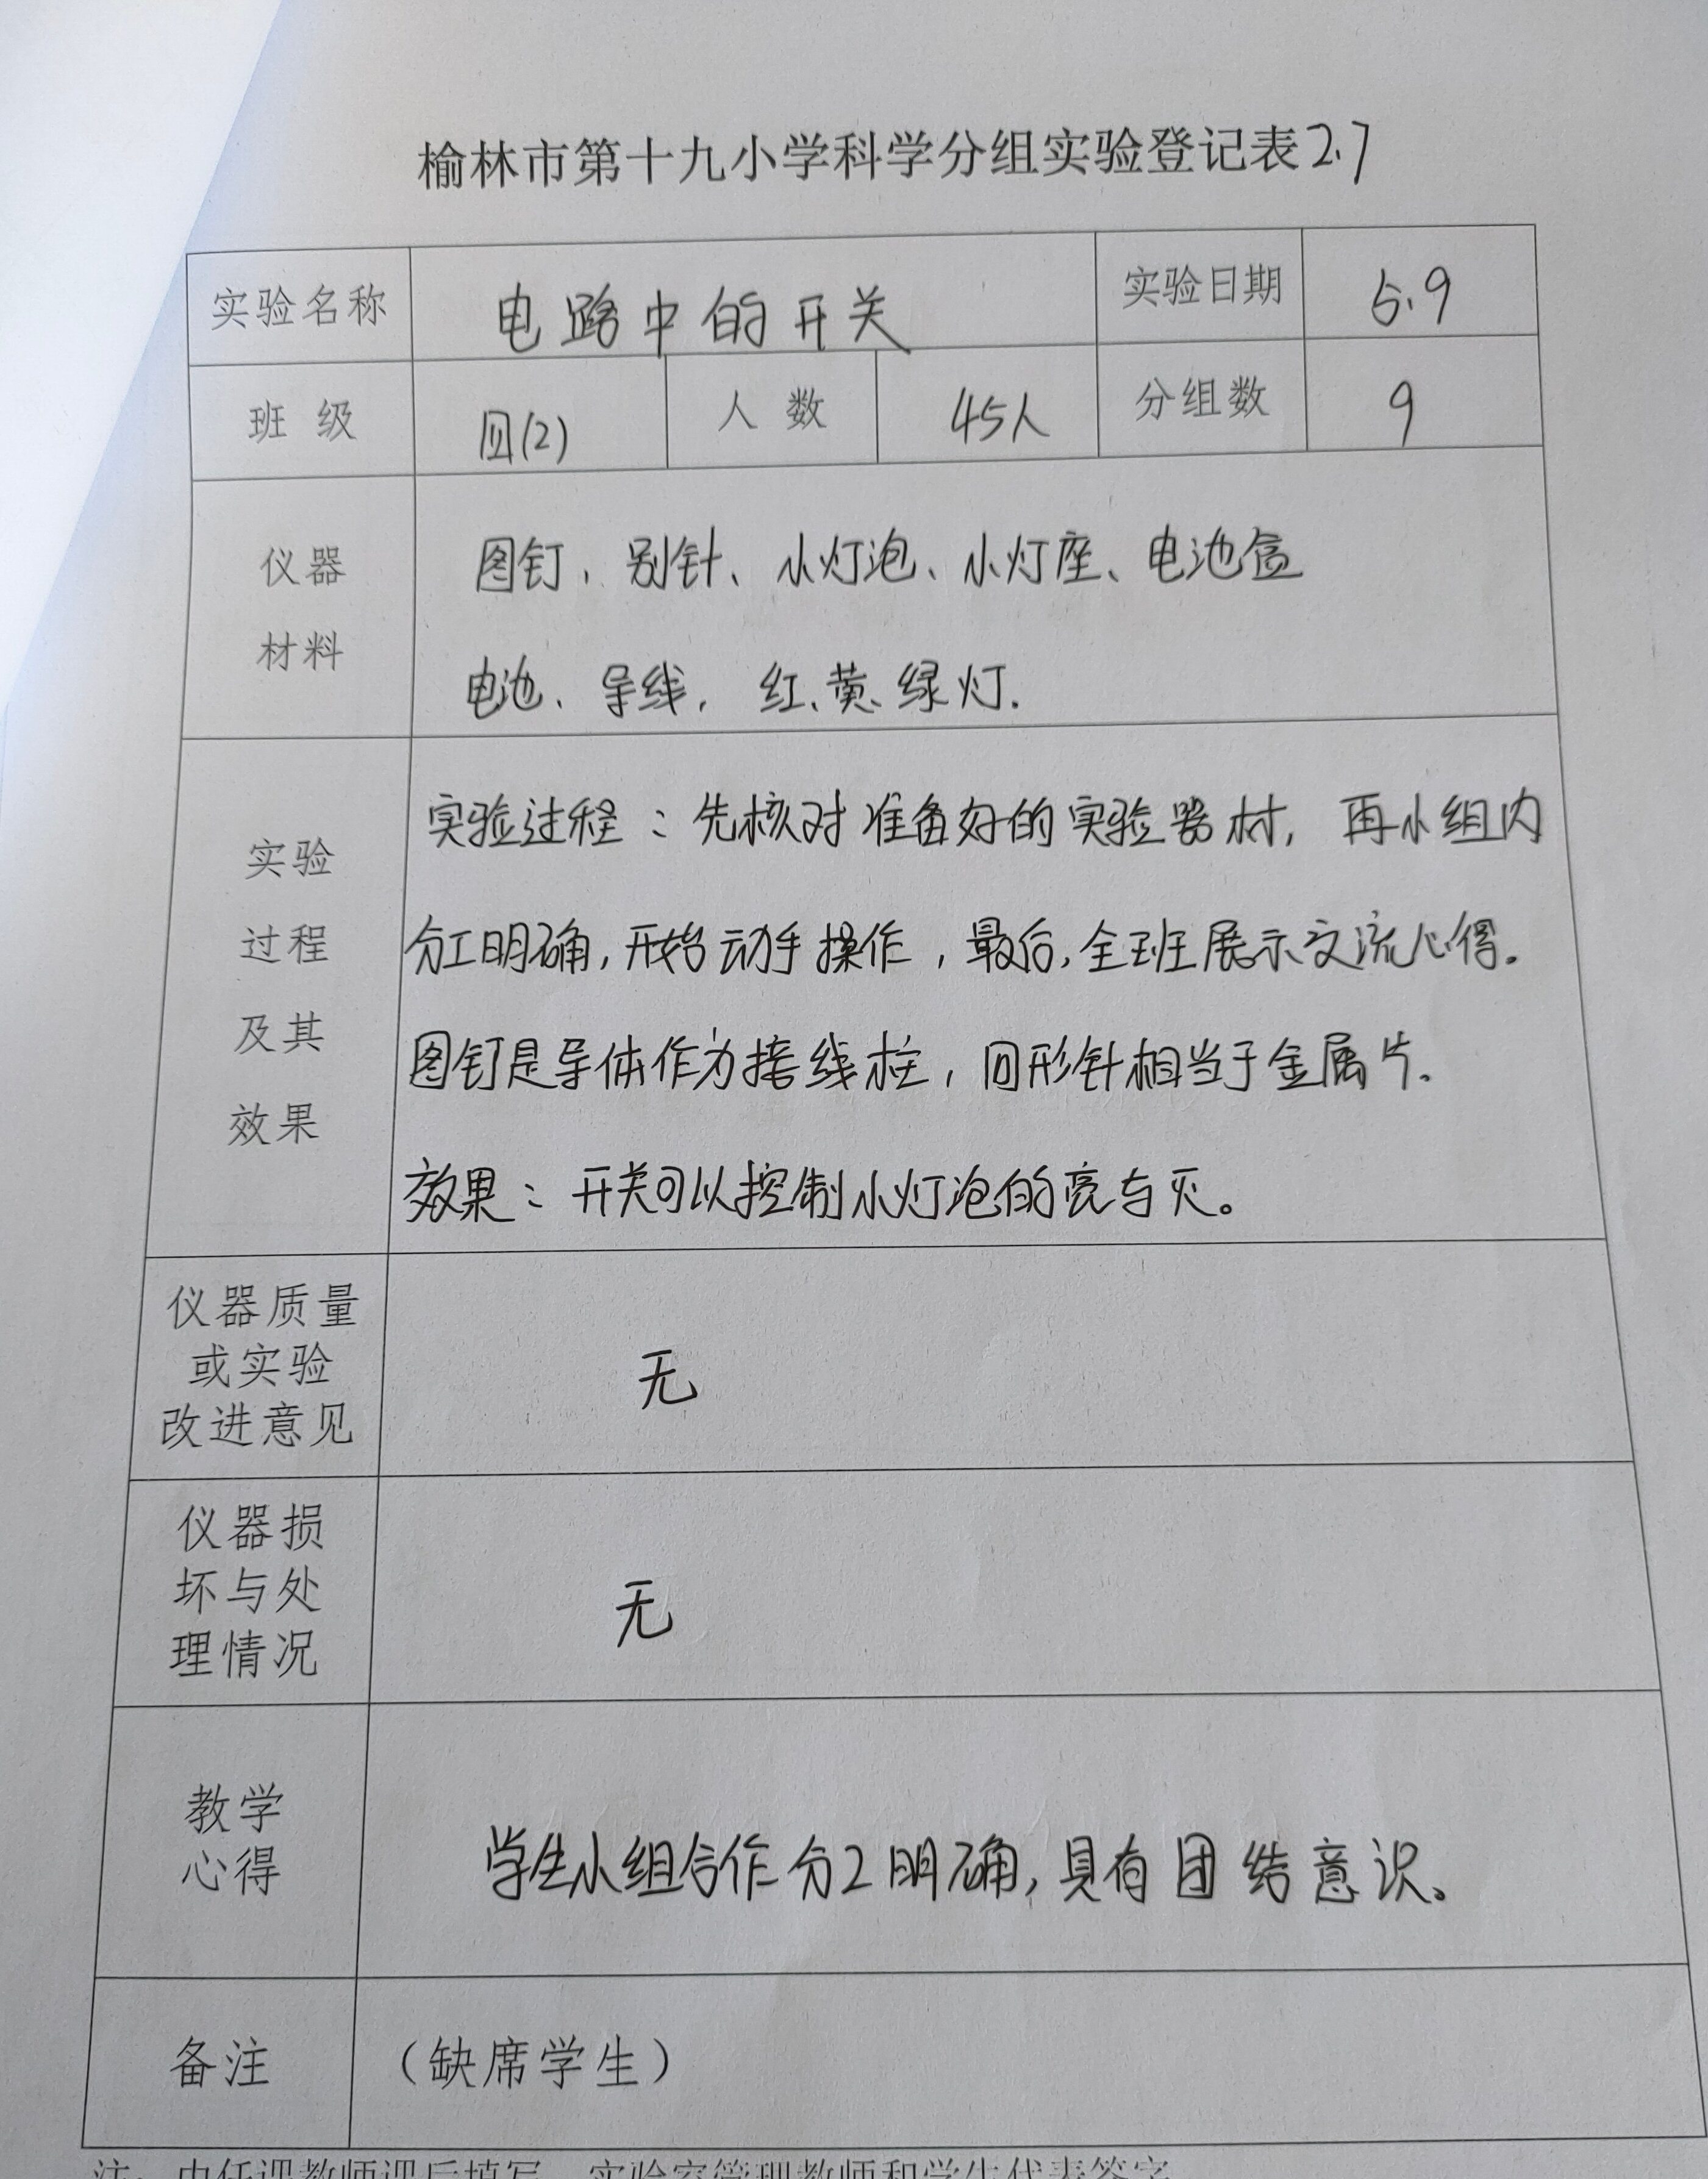 榆林市第十九小学科学分组实验登记表2.7
实验名称 电路中的开关 实验日期 5.9
班级 四(2) 人数 45人 分组数 9
仪器
材料
图钉、别针、小灯泡、小灯座、电池盒
电池、导线, 红、黄、绿灯.
实验
过程
及其
效果
实验过程：先核对准备好的实验器材, 再小组内
分工明确,开始动手操作, 最后,全班展示交流心得。
图钉是导体作为接线柱, 回形针相当于金属片.
效果：开关可以控制小灯泡的亮与灭。
仪器质量
或实验
改进意见
无
仪器损
坏与处
理情况
无
教学
心得
学生小组合作分工明确,具有团结意识。
备注 （缺席学生）
注：由任课教师课后填写，实验室管理教师和学生代表签字